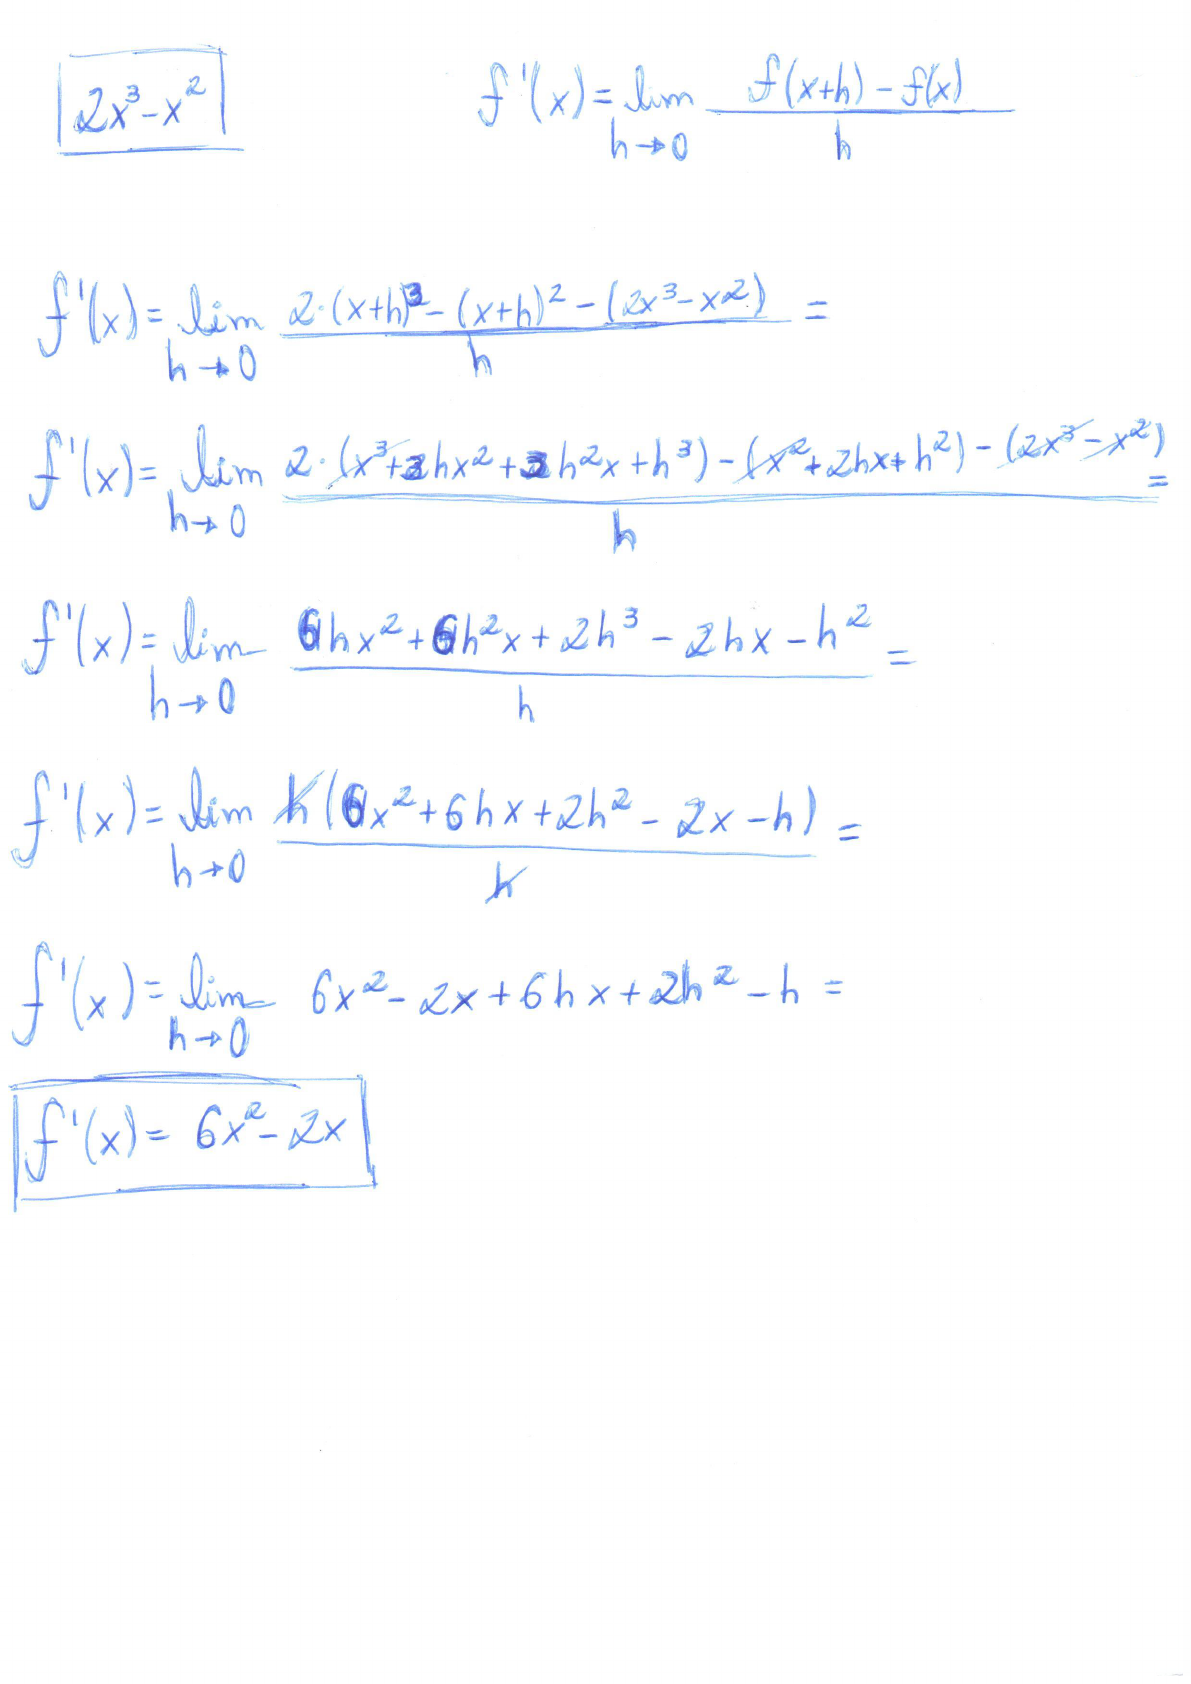 2x³-x²
f'(x) = lim h→0 (f(x+h) - f(x))/h
f'(x) = lim h→0 (2·(x+h)³ - (x+h)² - (2x³-x²))/h =
f'(x) = lim h→0 (2·(x³+3hx²+3h²x+h³) - (x²+2hx+h²) - (2x³-x²))/h =
f'(x) = lim h→0 (6hx²+6h²x+2h³-2hx-h²)/h =
f'(x) = lim h→0 h(6x²+6hx+2h²-2x-h)/h =
f'(x) = lim h→0 6x²-2x+6hx+2h²-h =
f'(x) = 6x²-2x